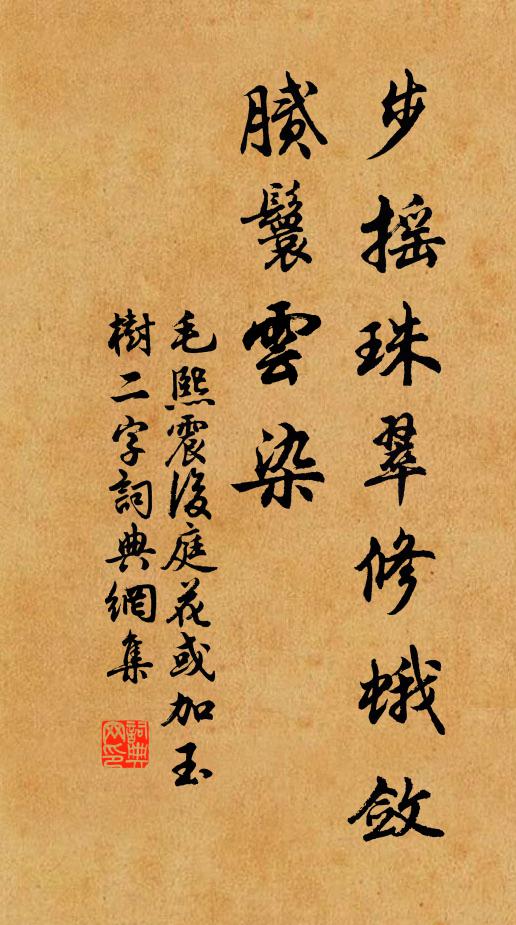 步搖珠翠修蛾斂
膩鬟雲染
毛熙震後庭花或加玉
樹二字詞典網集
詞典
网印